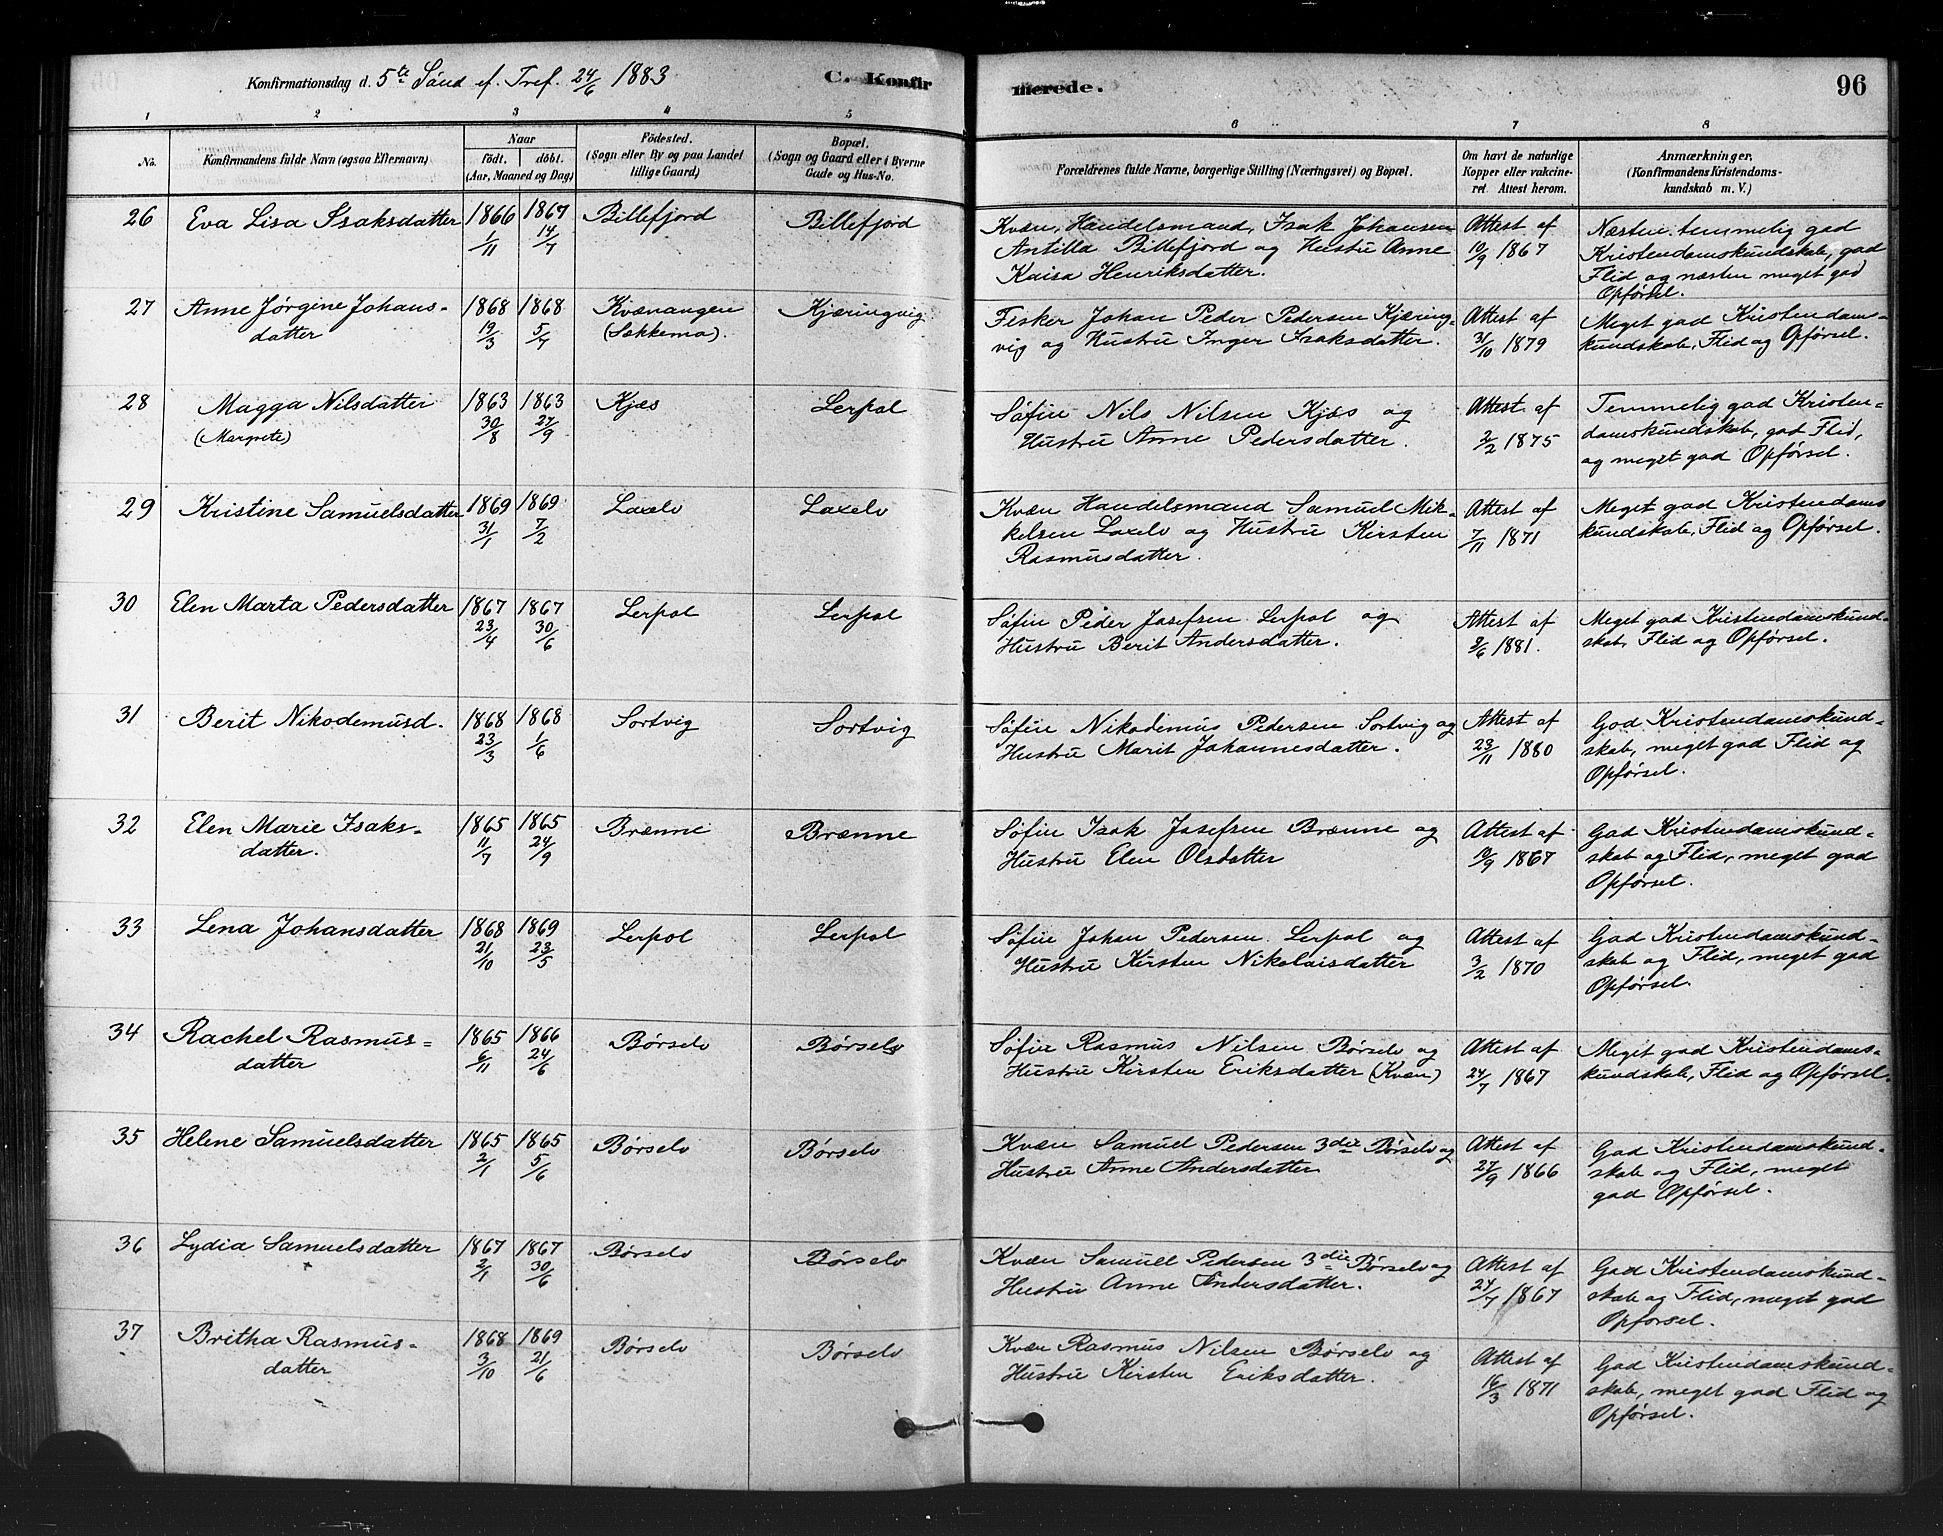 Konfirmationsdag d. 5te Sönd ef. Tref. 24/6 1883
C. Konfirmerede.
96
1 2 3 4 5 6 7 8
No.
Konfirmandens fulde Navn (ogsaa Efternavn)
Naar
födt. döbt.
(Aar, Maaned og Dag)
Födested.
(Sogn eller By og paa Landet
tillige Gaard)
Bopæl.
(Sogn og Gaard eller i Byerne
Gade og Hus-No.
Forældrenes fulde Navne, borgerlige Stilling (Næringsvei) og Bopæl.
Om havt de naturlige
Kopper eller vakcine-
ret. Attest herom.
Anmærkninger.
(Konfirmandens Kristendoms-
kundskab m. V.)
26 Eva Lisa Isaksdatter 1866 1/11 1867 14/7 Billefjord Billefjord
Kvæn, Handelsmand, Isak Johansen
Antilla Billefjord og Hustru Anne
Kaisa Henriksdatter.
Attest af
10/9 1867
Næsten temmelig god
Kristendomskundskab, god
Flid og næsten meget god
Opførsel.
27 Anne Jørgine Johans-
datter
1868 19/3 1868 5/7
Kvænangen
(Sekkemo).
Kjæringvig
Fisker Johan Peder Pedersen Kjæring-
vig og Hustru Inger Isaksdatter.
Attest af
31/10 1879
Meget god Kristendoms-
kundskab, Flid og Opførsel.
28 Magga Nilsdatter
(Margrete)
1863 30/8 1863 27/9 Kjæs Lerpol
Søfin Nils Nilsen Kjæs og
Hustru Anne Pedersdatter.
Attest af
2/2 1875
Temmelig god Kristen-
domskundskab, god Flid,
og meget god Opførsel.
29 Kristine Samuelsdatter 1869 31/1 1869 7/2 Laxelv Laxelv
Kvæn Handelsmand Samuel Mik-
kelsen Laxelv og Hustru Kirsten
Rasmusdatter.
Attest af
7/11 1871
Meget god Kristendoms
kundskab, Flid og Opførsel.
30 Elen Marta Pedersdatter 1867 23/4 1867 30/6 Lerpol Lerpol
Søfin Peder Josefsen Lerpol og
Hustru Berit Andersdatter.
Attest af
2/6 1881.
Meget god Kristendomskund-
skab, Flid og Opførsel.
31 Berit Nikodemusd. 1868 23/3 1868 1/6 Sortvig Sortvig
Søfin Nikodemus Pedersen Sortvig og
Hustru Marit Johannesdatter.
Attest af
23/11 1880
God Kristendomskund-
skab, meget god Flid og
Opførsel.
32 Elen Marie Isaks-
datter.
1865 11/7 1865 24/9 Brænne Brænne
Søfin Isak Josefsen Brænne og
Hustru Elen Olsdatter
Attest af
10/9 1867
God Kristendomskund-
skab og Flid, meget god
Opførsel.
33 Lena Johansdatter 1868 21/10 1869 23/5 Lerpol Lerpol
Søfin Johan Pedersen Lerpol og
Hustru Kirsten Nikolaisdatter
Attest af
3/2 1870
God Kristendomskund-
skab og Flid, meget god
Opførsel.
34 Rachel Rasmus-
datter
1865 6/11 1866 24/6 Børselv Børselv
Søfin Rasmus Nilsen Børselv og
Hustru Kirsten Eriksdatter (Kvæn)
Attest af
24/7 1867
Meget god Kristendoms-
kundskab, Flid og Opførsel.
35 Helene Samuelsdatter 1865 2/1 1865 5/6 Børselv Børselv
Kvæn Samuel Pedersen 3die Børselv og
Hustru Anne Andersdatter
Attest af
27/9 1866
God Kristendomskund-
skab og Flid, meget
god Opførsel.
36 Lydia Samuelsdatter 1867 2/1 1867 30/6 Børselv Børselv
Kvæn Samuel Pedersen 3die Børselv og
Hustru Anne Andersdatter.
Attest af
24/7 1867
God Kristendomskund-
skab og Flid, meget god
Opførsel.
37 Britha Rasmus-
datter
1868 3/10 1869 21/6 Børselv Børselv
Kvæn Rasmus Nilsen Børselv og
Hustru Kirsten Eriksdatter.
Attest af
16/3 1871
God Kristendomskund-
skab, meget god Flid og
Opførsel.